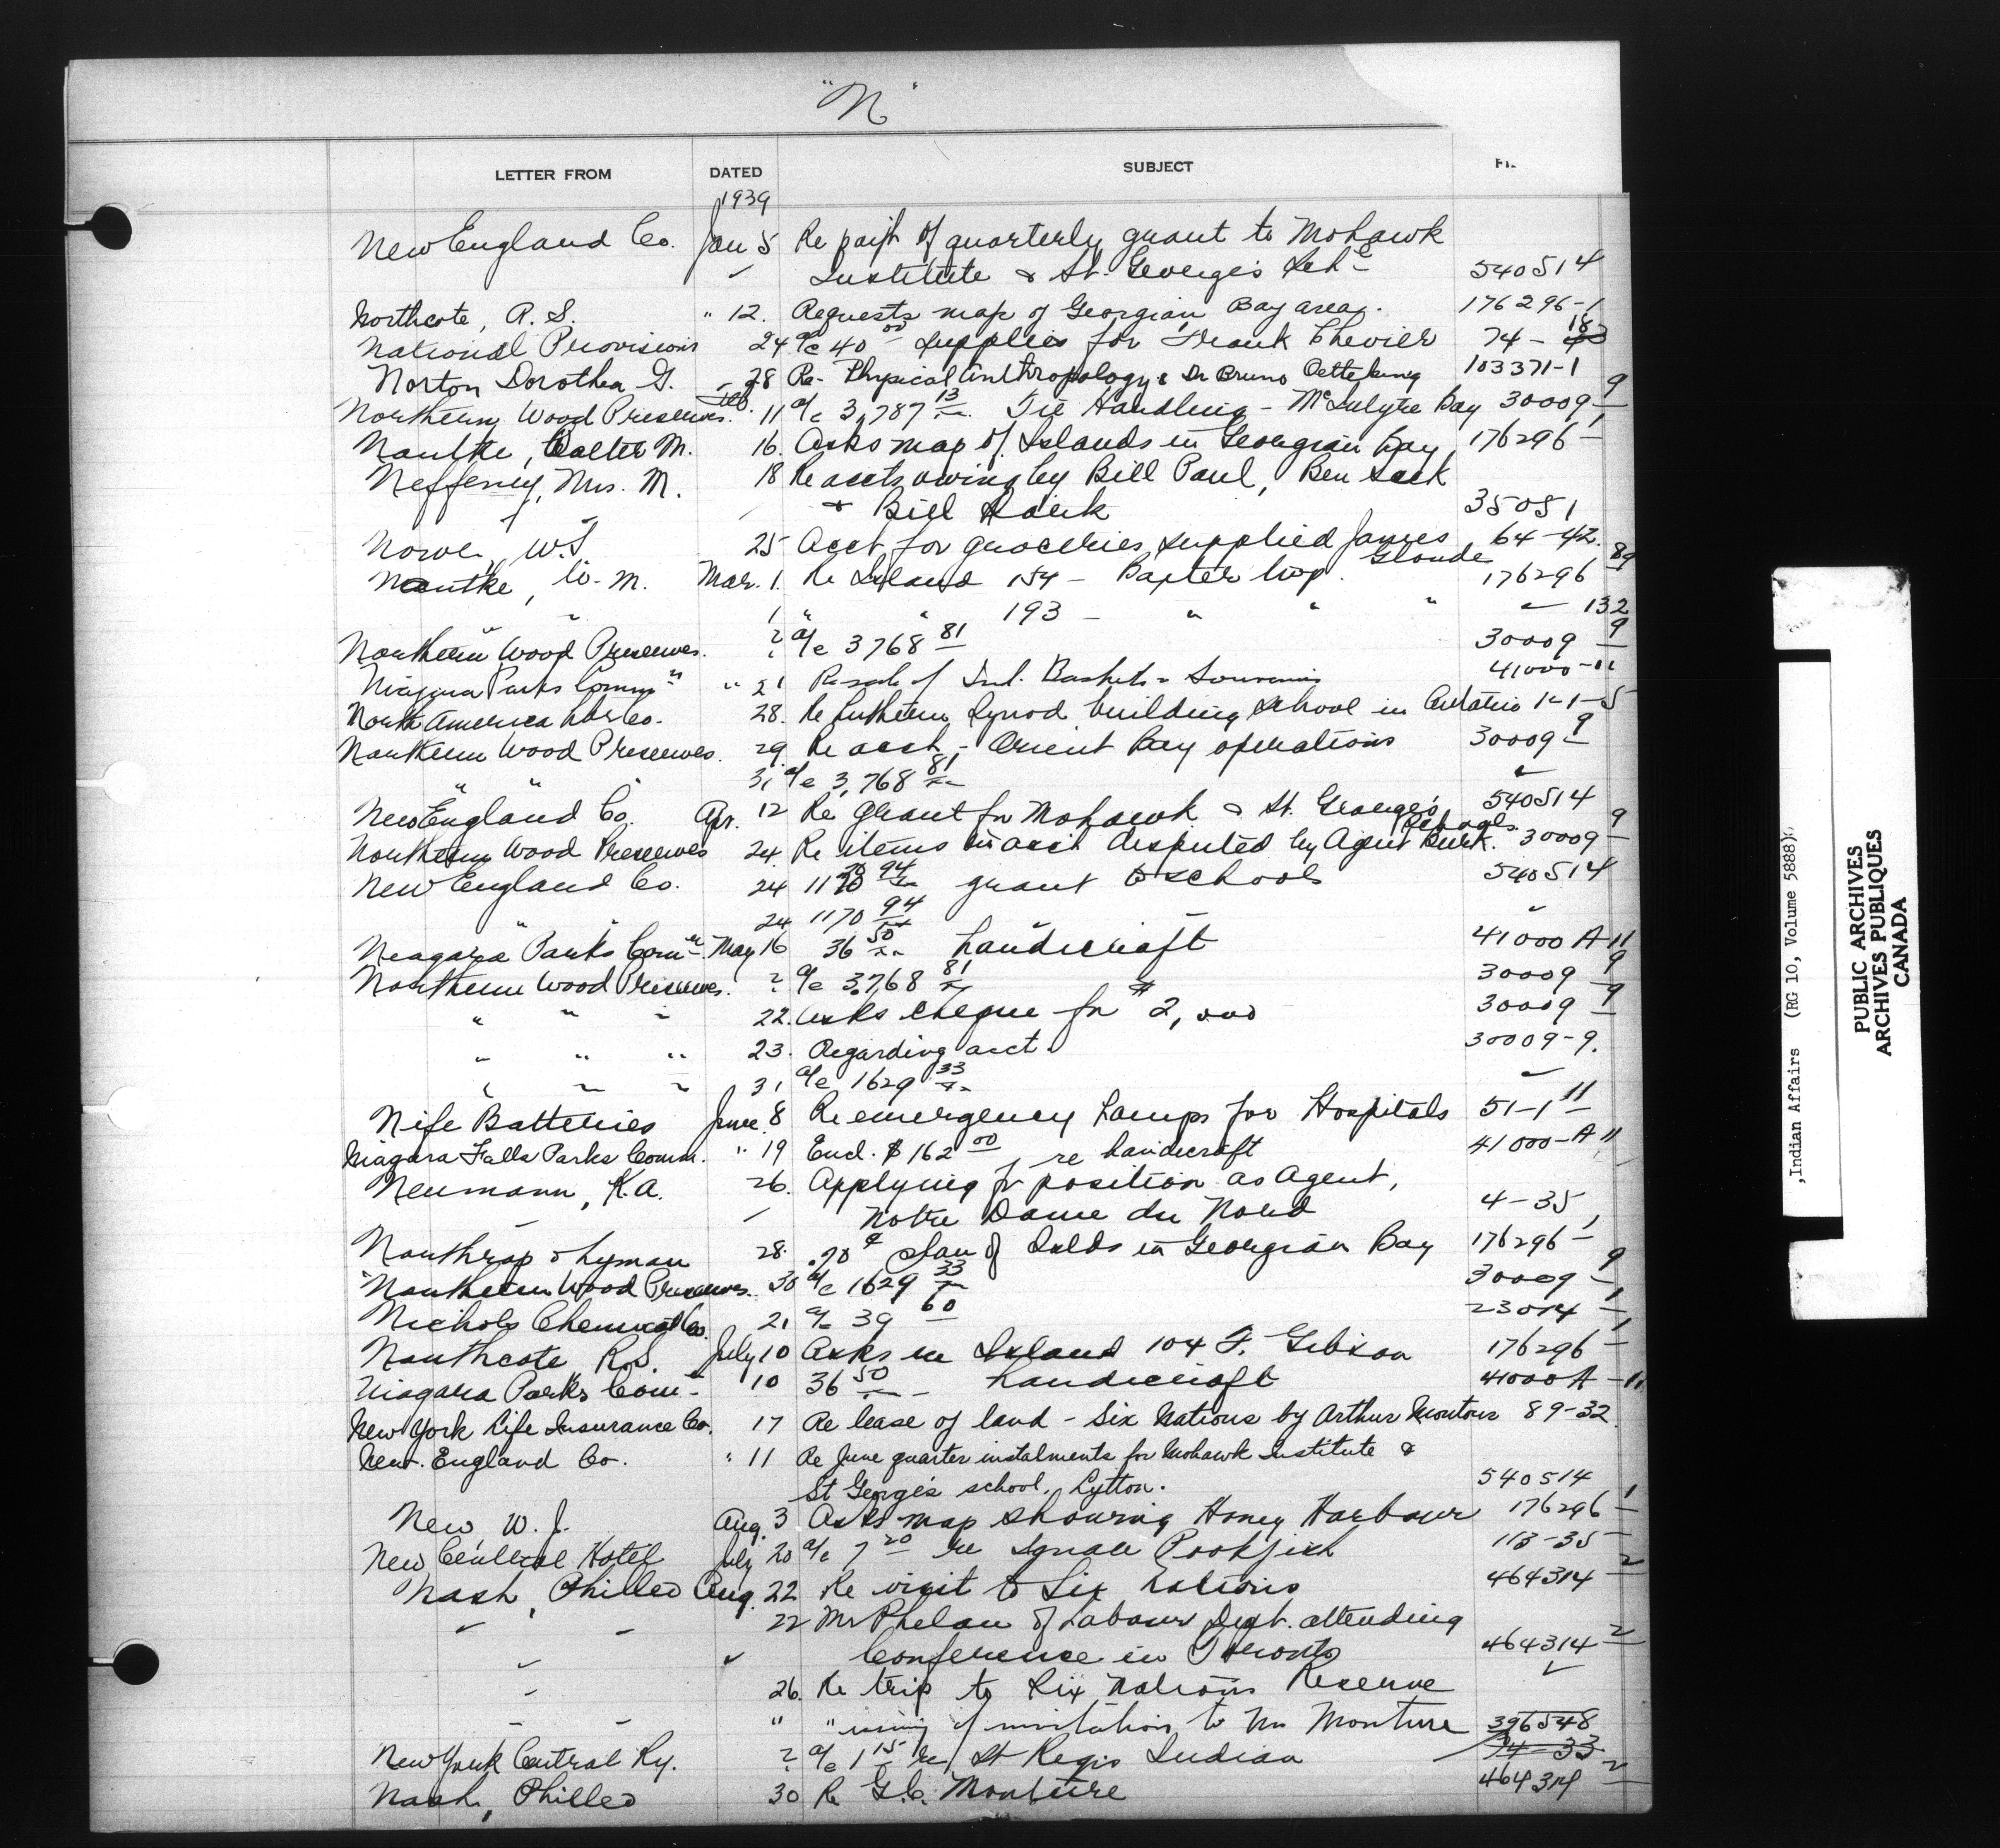 "N"
LETTER FROM DATED SUBJECT
1939
New England Co. Jan 5 Re paym't of quarterly grant to Mohawk
" Institute & St. George's Schs 540514
Northcote, R. S. " 12. Requests map of Georgian Bay area. 176296-1
National Provisions 24 a/c 40 00 supplies for Frank Chevier 74-18
Norton Dorothea G. " 28 Re- Physical Anthropology & Dr Bruno Oetteking 103371-1
Northern Wood Preserves. Feb. 11 a/c 3,787 13 Tie Handling - McIntyre Bay 30009-9
Nantke, Walter M. 16. Asks map of Islands in Georgian Bay 176296-1
Nefferny, Mrs. M. 18 Re accts owing by Bill Paul, Ben Sack
& Bill 35051
W.T. 25 Acct for groceries supplied James Gloude 64-42.
Nantke, W. M. Mar. 1. Re Island 154 - Baxter twp. 176296-89
" 1 " " 193 - " " " " 132
Northern Wood Preserves. ? a/c 3768 81 30009-9
Niagara Parks Comm'n " 21 Re sale of Ind. Baskets & Souvenirs 41000-11
North America Life Co. 28. Re Lutheran Synod building school in Ontario 1-1-5
Northern Wood Preserves. 29. Re acct. - Orient Bay operations 30009-9
" " " 31 a/c 3,768 81 "
New England Co. Apr. 12 Re grant for Mohawk & St. George's Schools. 540514
Northern Wood Preserves 24. Re items in acct disputed by Agent Burk. 30009-9
New England Co. 24 1170 94 grant to schools 540514
" " 24 1170 94 " "
Niagara Parks Com'n May 16 36 50 handicraft 41000 A-11
Northern Wood Preserves. ? a/c 3,768 81 30009-9
" " " 22. Asks cheque for $2,000 30009-9
" " " 23. Regarding acct. 30009-9.
" " " 31 a/c 1629 33 "
Nife Batteries June 8 Re emergency lamps for Hospitals 51-1-11
Niagara Falls Parks Comm. " 19 Encl. $162 00 re handicraft 41000-A 11
Neumann, K.A. 26. Applying for position as Agent,
" Notre Dame du Nord 4-35
Northrop & Lyman 28. .70¢ plan of Islds in Georgian Bay 176296-1
Northern Wood Preserves. 30 a/c 1629 33 30009-9
Nichols Chemical Co. 21 a/c 39 60 23014-1
Northcote R.S. July 10 Asks re Island 104 F. Gibson 176296-1
Niagara Parks Com'n 10 36 50 - handicraft 41000A-11
New York Life Insurance Co. 17 Re lease of land - Six Nations by Arthur Montour 89-32
New England Co. " 11 Re June quarter instalments for Mohawk Institute &
St George's school, Lytton. 540514
New, W. J. Aug. 3 Asks map showing Honey Harbour 176296-1
New Central Hotel July 20 a/c 7 20 re Ignace 113-35
Nash, Philleo Aug. 22 Re visit to Six Nations 464314-2
" " 22 Mr Phelan of Labour Dept. attending
" " Conference in Toronto 464314-2
" 26. Re trip to Six Nations Reserve "
" " " " of invitation to Mr Monture 396548
New York Central Ry. ? a/c 1 15 re St Regis Indian 74-33
Nash, Philleo 30 Re G.C. Monture 464314-2
Indian Affairs (RG 10, Volume 5888)
PUBLIC ARCHIVES
ARCHIVES PUBLIQUES
CANADA